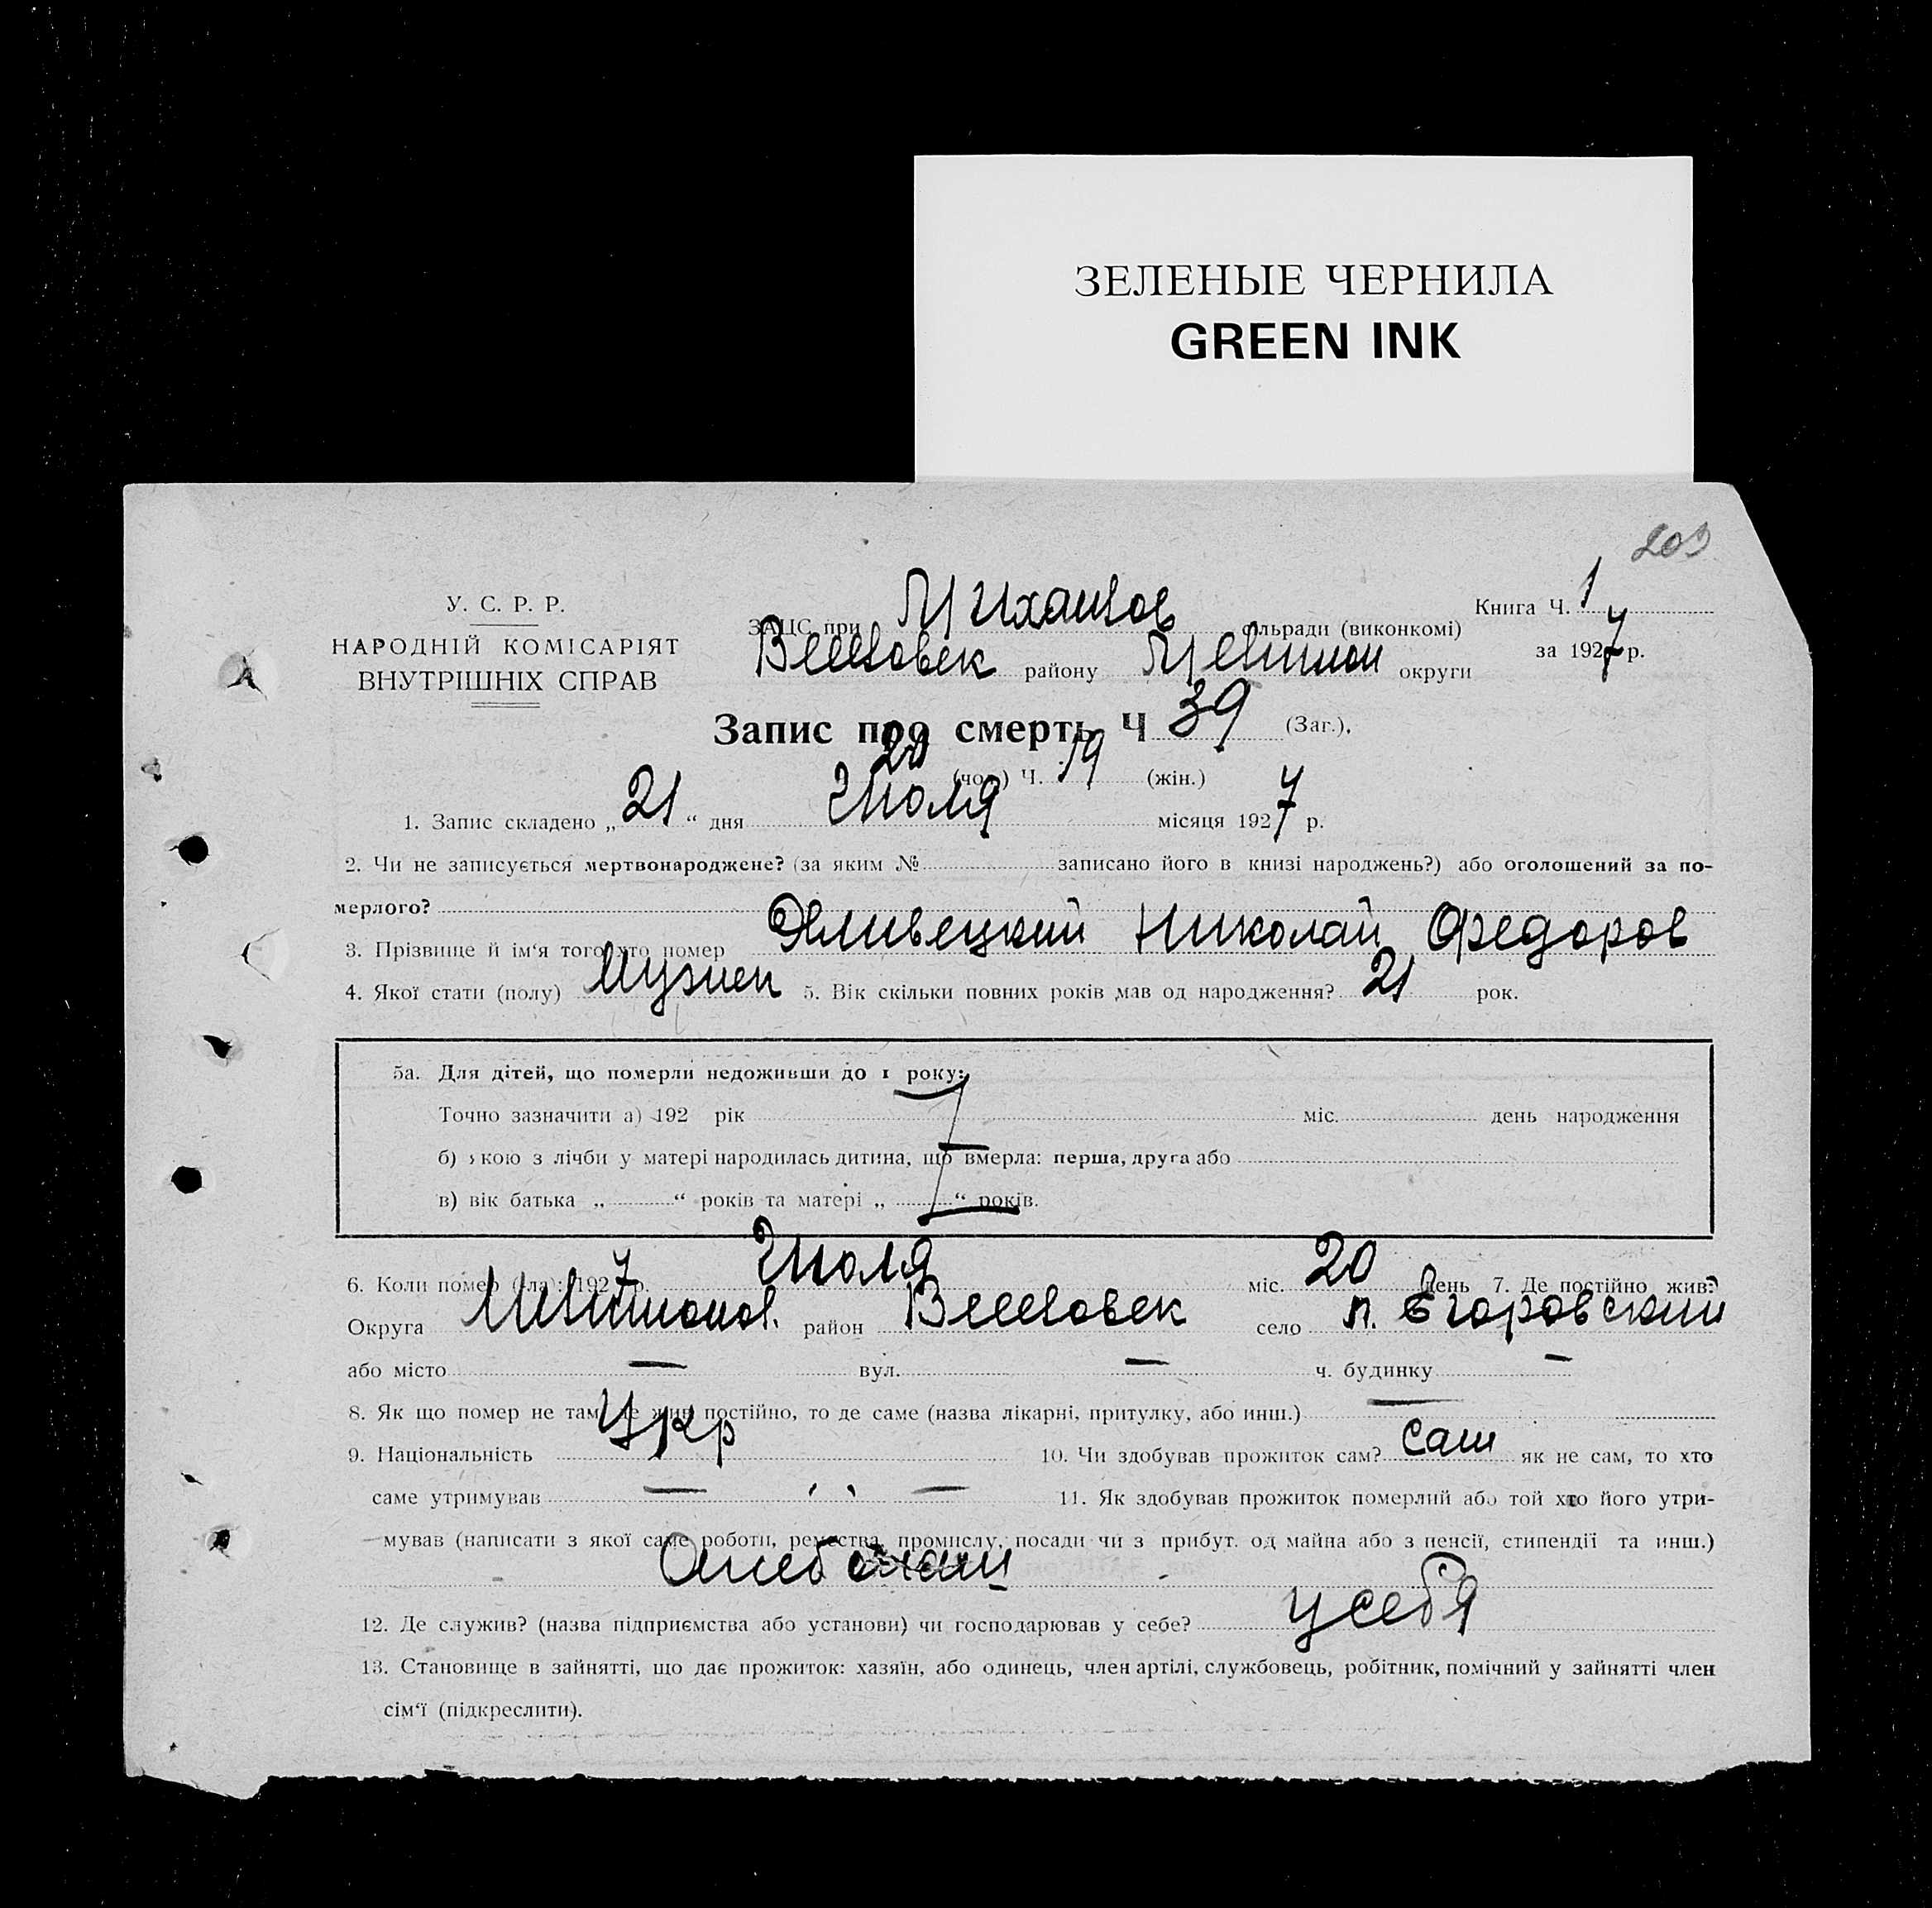 ЗЕЛЕНЫЕ ЧЕРНИЛА
GREEN INK
209
У. С. Р. Р.
НАРОДНІЙ КОМІСАРІЯТ
ВНУТРІШНІХ СПРАВ
ЗАЦС при Михайлов сільради (виконкомі)
Веселовск району Мелитоп округи
Книга Ч. 1
за 1927 р.
Запис про смерть Ч 39 (Заг.),
20 (чол.) Ч. 19 (жін.)
1. Запис складено „21“ дня Июля місяця 1927 р.
2. Чи не записується мертвонароджене? (за яким № записано його в книзі народжень?) або оголошений за по-
мерлого?
3. Прізвище й ім‘я того хто помер Яливецкий Николай Федоров
4. Якої стати (полу) Мужчи 5. Вік скільки повних років мав од народження? 21 рок.
5а. Для дітей, що померли недоживши до 1 року:
Точно зазначити а) 192 рік міс. день народження
б) якою з лічби у матері народилась дитина, що вмерла: перша, друга або
в) вік батька „ “ років та матері „ “ років.
6. Коли помер (ла): 1927 р. Июля міс. 20 день 7. Де постійно жив?
Округа Мелитопол. район Веселовск село п. Егоровский
або місто — вул. — ч. будинку —
8. Як що помер не там, де жив постійно, то де саме (назва лікарні, притулку, або инш.) —
9. Національність Укр 10. Чи здобував прожиток сам? Сам як не сам, то хто
саме утримував — „ — 11. Як здобував прожиток померлий або той хто його утри-
мував (написати з якої саме роботи, ремества, промислу, посади чи з прибут. од майна або з пенсії, стипендії та инш.)
12. Де служив? (назва підприємства або установи) чи господарював у себе? у себя
13. Становище в зайнятті, що дає прожиток: хазяїн, або одинець, член артілі, службовець, робітник, помічний у зайнятті член
сім‘ї (підкреслити).